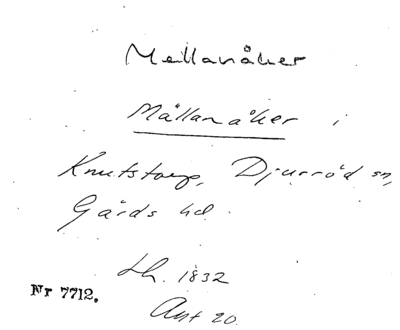 Mellanåker
Mällanåker i
Knutstorp, Djurröd sn,
Gärds hd.
Lh. 1832
Nr 7712.
Akt 20.